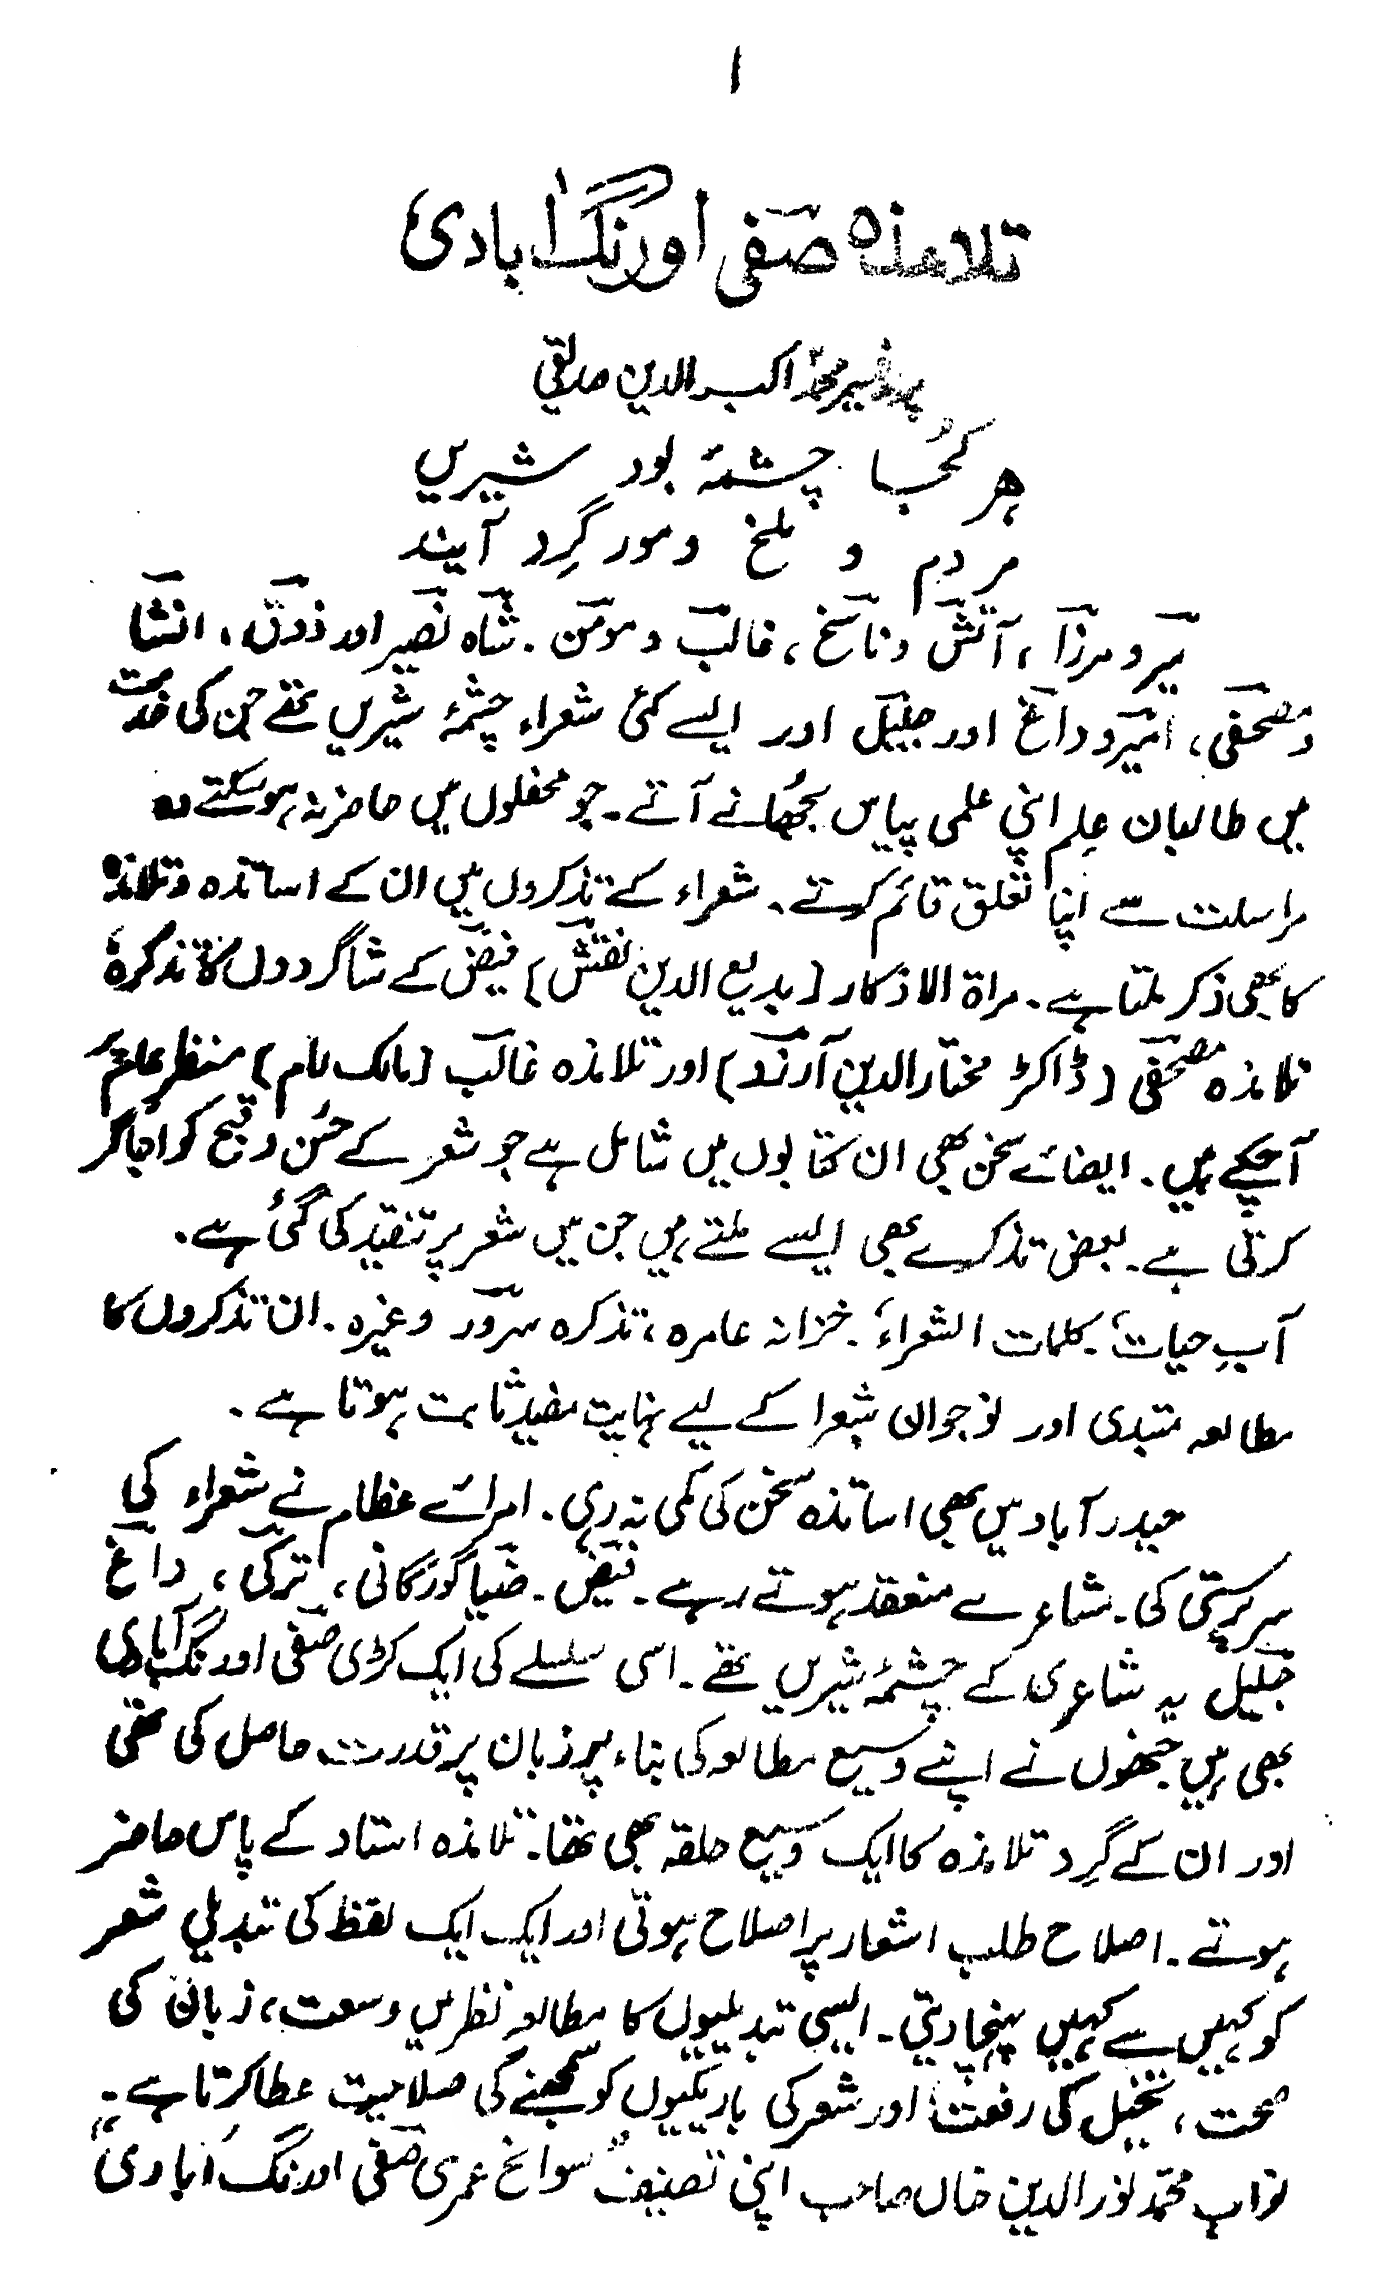 ۱
تلامذہ صفی اورنگ آبادی
پروفیسر محمد اکبر الدین صدیقی
ہر کُجا چشمۂ بود شیریں
مردم و ملخ و مور گِرد آیند
میر و مرزا، آتش و ناسخ، غالب و مومن۔ شاہ نصیر اور ذوق، انشا
و مصحفی، امیر و داغ اور جلیل اور ایسے کئی شعراء چشمۂ شیریں تھے جن کی خدمت
میں طالبان علِم اپنی علمی پیاس بجھانے آتے۔ جو محفلوں میں حاضر نہ ہو سکتے وہ
مراسلت سے اپنا تعلق قائم کرتے۔ شعراء کے تذکروں میں ان کے اساتذہ و تلامذہ
کا بھی ذکر ملتا ہے۔ مراۃ الاذکار (بدیع الدین نقش) فیض کے شاگردوں کا تذکرہ
تلامذہ مصحفی (ڈاکٹر مختار الدین آرزو) اور تلامذہ غالب (مالک رام) منظر عام پر
آ چکے ہیں۔ ایضائے سخن بھی ان کتابوں میں شامل ہے جو شعر کے حُسن و قبح کو اجاگر
کرتی ہے۔ بعض تذکرے بھی ایسے ملتے ہیں جن میں شعر پر تنقید کی گئی ہے۔
آبِ حیات۔ کلمات الشعراء۔ خزانہ عامرہ، تذکرہ سرور وغیرہ۔ ان تذکروں کا
مطالعہ مبتدی اور نوجوان شعرا کے لیے نہایت مفید ثابت ہوتا ہے۔
حیدرآباد میں بھی اساتذہ سخن کی کمی نہ رہی۔ امرائے عظام نے شعراء کی
سرپرستی کی۔ مشاعرے منعقد ہوتے رہے۔ فیض۔ ضیا گورگانی، ترکی، داغ
جلیل یہ شاعری کے چشمۂ شیریں تھے۔ اسی سلسلے کی ایک کڑی صفی اورنگ آبادی
بھی ہیں جنھوں نے اپنے وسیع مطالعہ کی بناء پر زبان پر قدرت حاصل کی تھی
اور ان کے گِرد تلامذہ کا ایک وسیع حلقہ بھی تھا۔ تلامذہ استاد کے پاس حاضر
ہوتے۔ اصلاح طلب اشعار پر اصلاح ہوتی اور ایک ایک لفظ کی تبدیلی شعر
کو کہیں سے کہیں پہنچا دیتی۔ ایسی تبدیلیوں کا مطالعہ نظر میں وسعت، زبان کی
صحت، تخیل کی رفعت اور شعر کی باریکیوں کو سمجھنے کی صلاحیت عطا کرتا ہے۔
نواب محمد نور الدین خاں صاحب اپنی تصنیف "سوانح عمری صفی اورنگ آبادی"